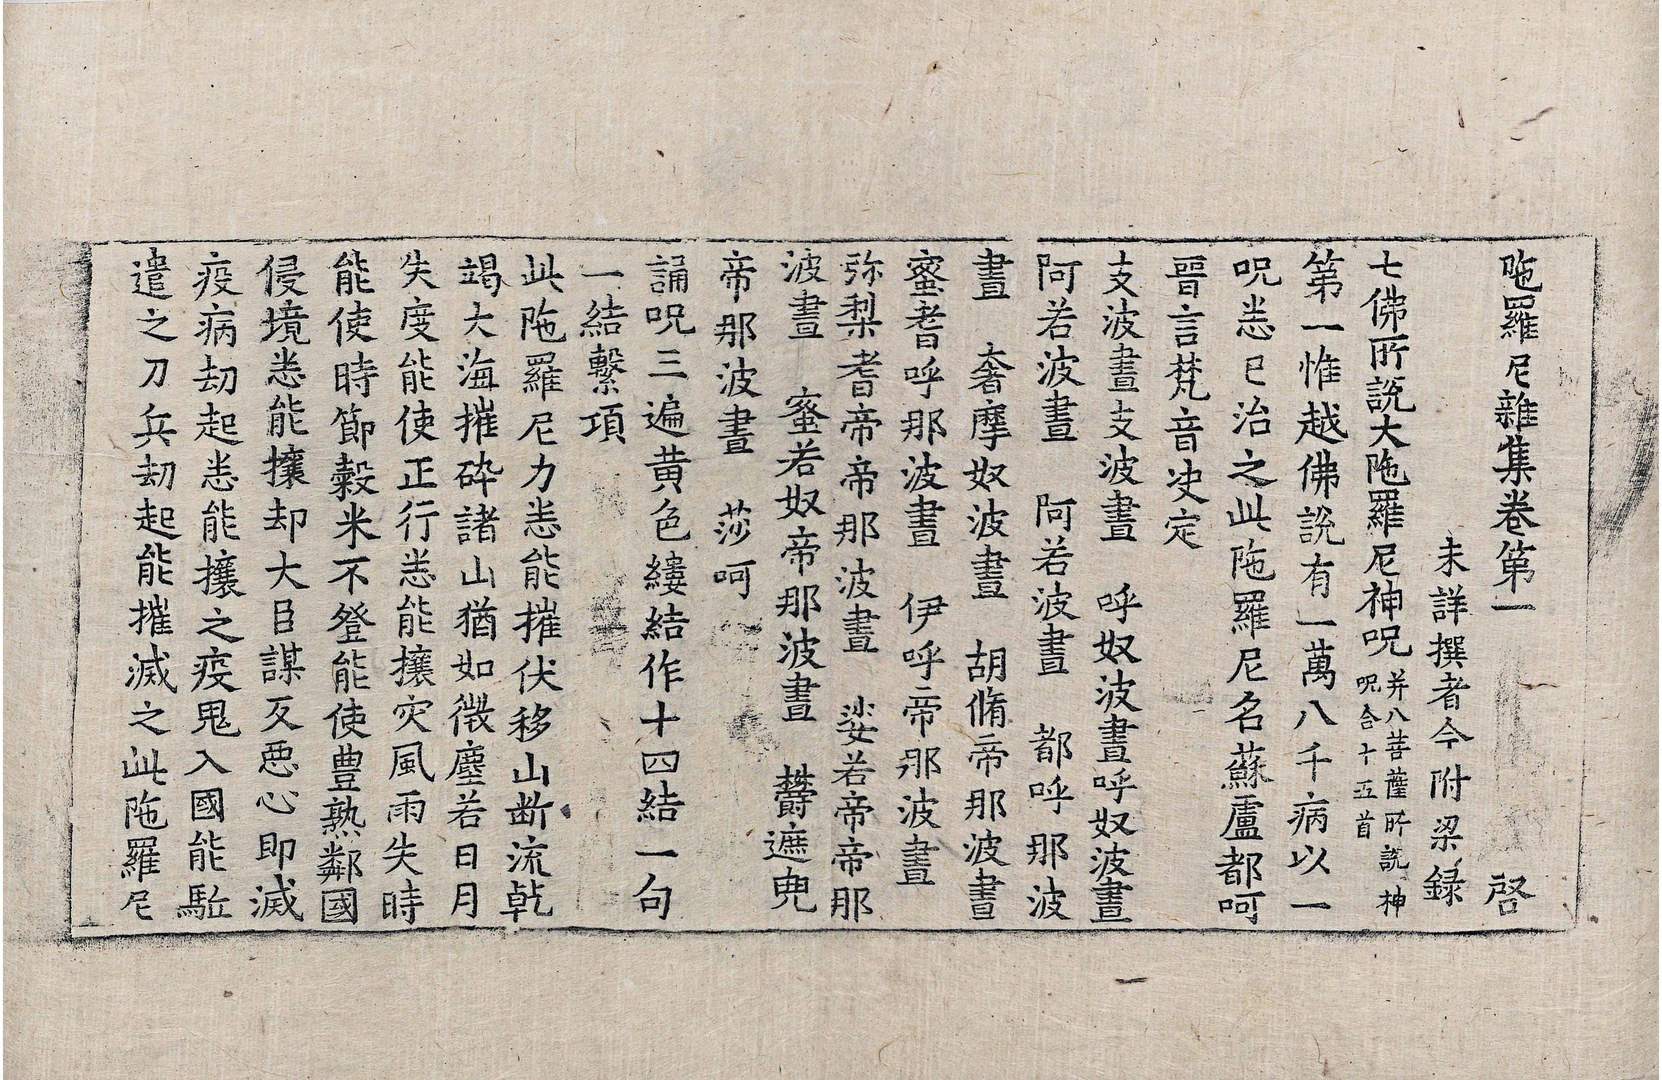 陁羅尼雜集卷第一 啓
未詳撰者今附梁錄
七佛所說大陁羅尼神呪 并八菩薩所說神呪合十五首
第一惟越佛說有一萬八千病以一
呪悉已治之此陁羅尼名蘇盧都呵
晉言梵音决定
支波晝支波晝 呼奴波晝呼奴波晝
阿若波晝 阿若波晝 都呼那波
晝 奢摩奴波晝 胡脩帝那波晝
蜜耆呼那波晝 伊呼帝那波晝
弥梨耆帝帝那波晝 娑若帝帝那
波晝 蜜若奴帝那波晝 欝遮兜
帝那波晝 莎呵
誦呪三遍黃色縷結作十四結一句
一結繫項
此陁羅尼力悉能摧伏移山断流乾
竭大海摧碎諸山猶如微塵若日月
失度能使正行悉能攘灾風雨失時
能使時節穀米不登能使豊熟鄰國
侵境悉能攘却大臣謀反惡心即滅
疫病劫起悉能攘之疫鬼入國能駈
遣之刀兵劫起能摧滅之此陁羅尼